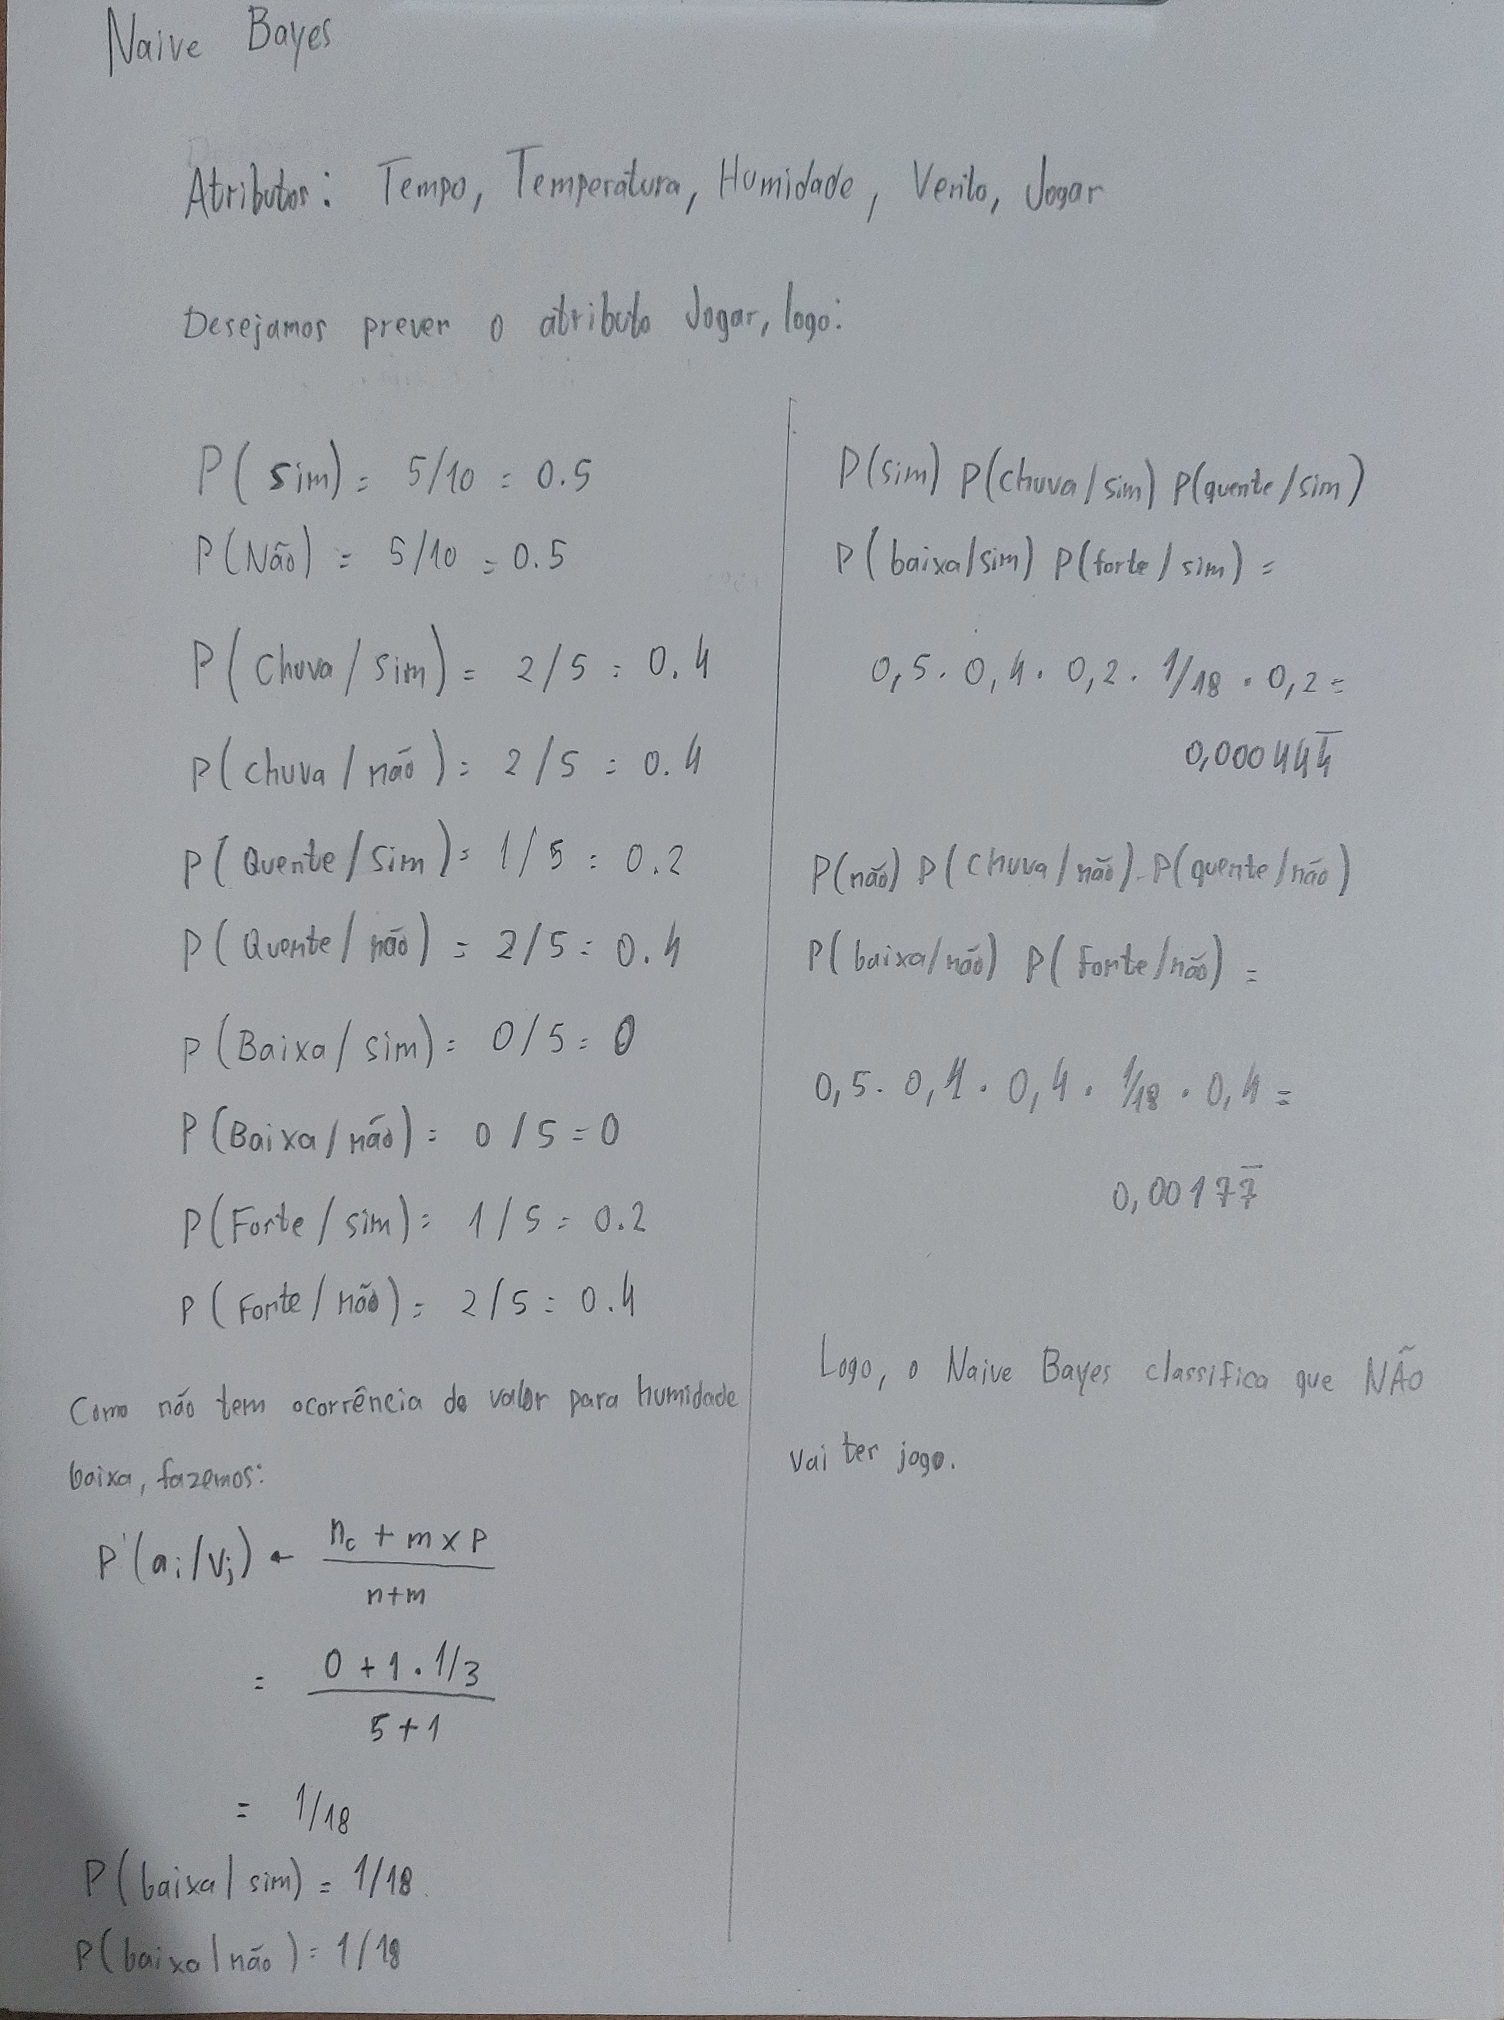 Naive Bayes
Atributos: Tempo, Temperatura, Humidade, Vento, Jogar
Desejamos prever o atributo Jogar, logo:
P(sim) = 5/10 = 0.5
P(Não) = 5/10 = 0.5
P(Chuva/sim) = 2/5 = 0.4
P(chuva/não) = 2/5 = 0.4
P(Quente/sim) = 1/5 = 0.2
P(Quente/não) = 2/5 = 0.4
P(Baixa/sim) = 0/5 = 0
P(Baixa/não) = 0/5 = 0
P(Forte/sim) = 1/5 = 0.2
P(Forte/não) = 2/5 = 0.4
Como não tem ocorrência de valor para humidade
baixa, fazemos:
P'(ai/vj) ← nc + m x p
n+m
= 0 + 1 . 1/3
5 + 1
= 1/18
P(baixa/sim) = 1/18
P(baixa/não) = 1/18
P(sim) P(chuva/sim) P(quente/sim)
P(baixa/sim) P(forte/sim) =
0,5 . 0,4 . 0,2 . 1/18 . 0,2 =
0,000444̅
P(não) P(chuva/não) . P(quente/não)
P(baixa/não) P(forte/não) =
0,5 . 0,4 . 0,4 . 1/18 . 0,4 =
0,00177̅
Logo, o Naive Bayes classifica que NÃO
vai ter jogo.